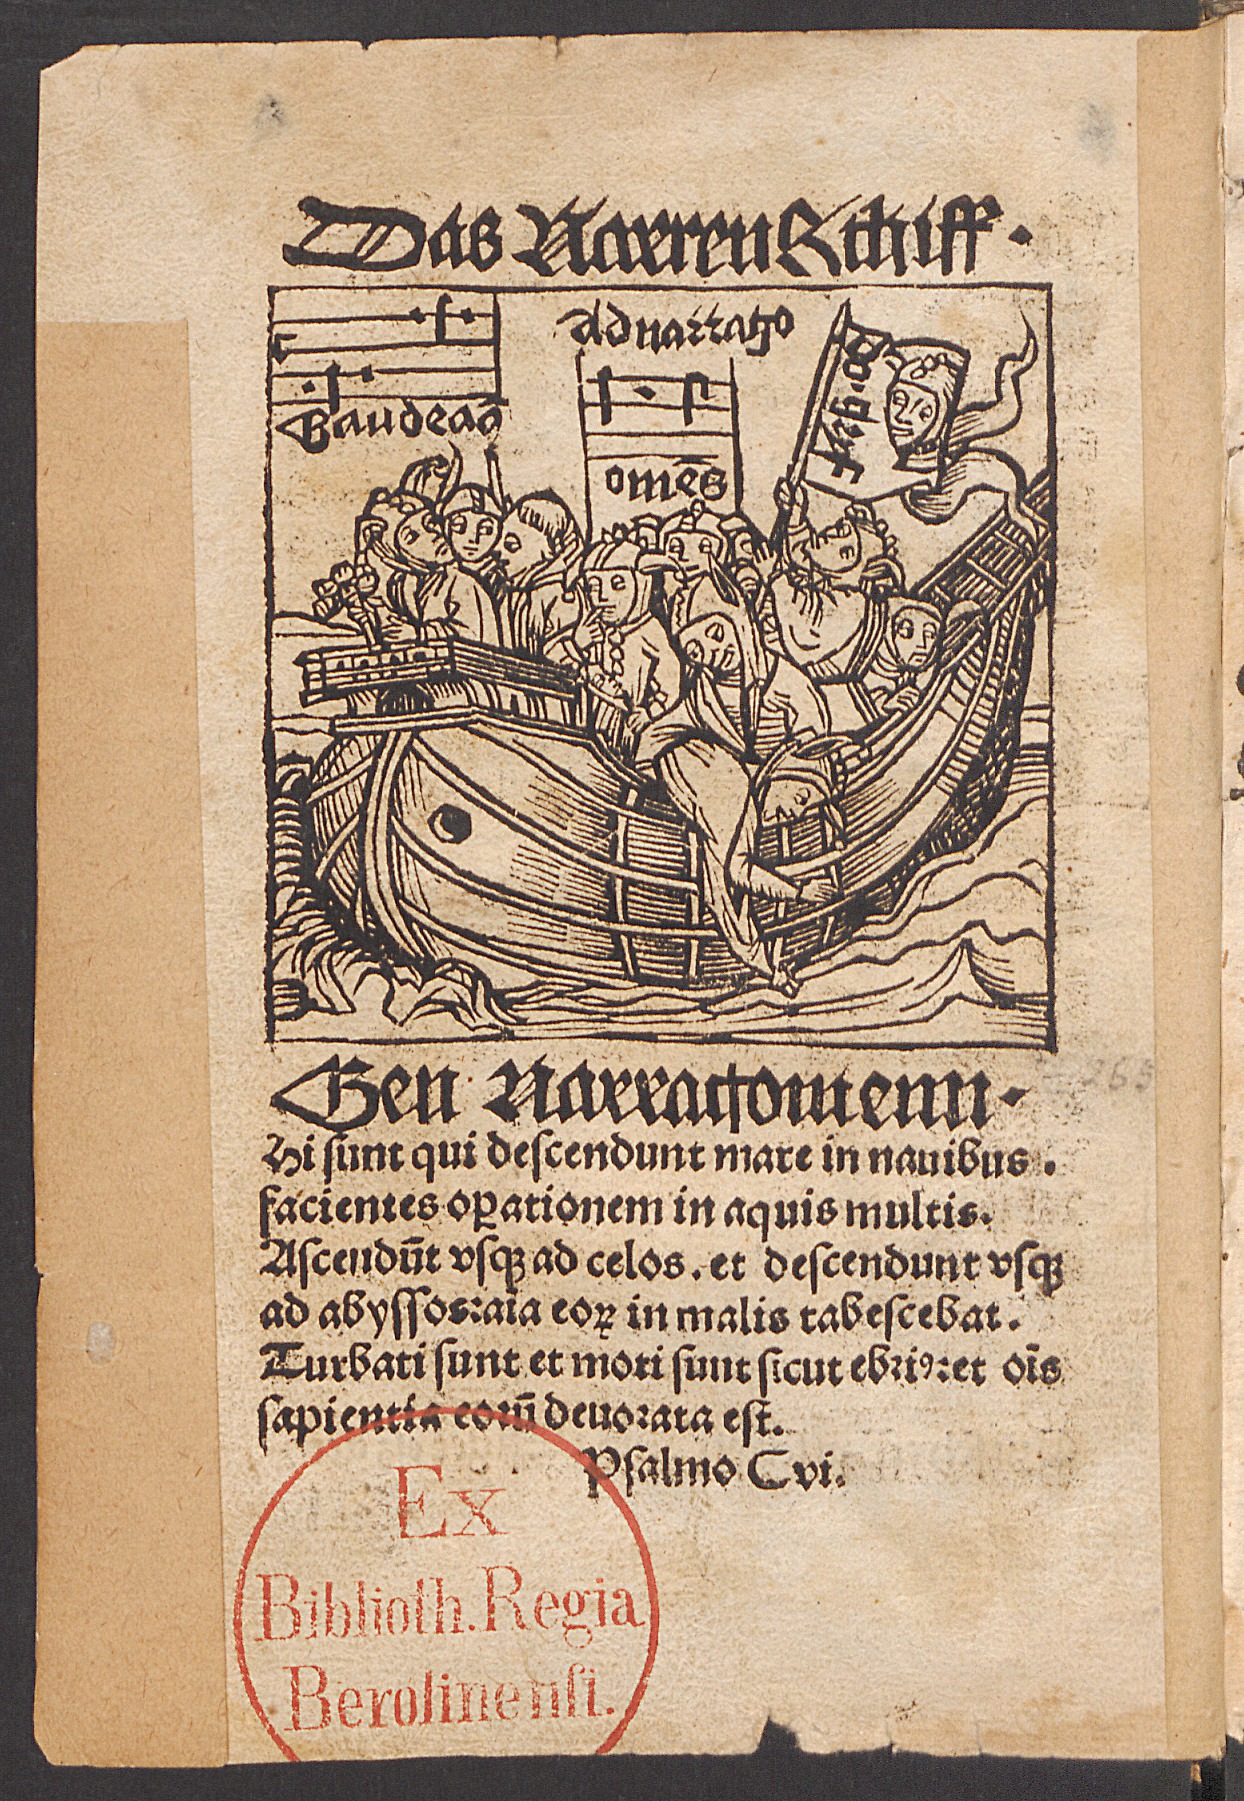 Das Narren Schiff.
Ad narragō
Gaudeaō
omēs
Gen Narragonienn.
Hi sunt qui descendunt mare in nauibus.
facientes oꝑationem in aquis multis.
Ascendūt vsqꝫ ad celos. et descendunt vsqꝫ
ad abyssos:aīa eoꝝ in malis tabescebat.
Turbati sunt et moti sunt sicut ebriꝰ:et oīs
sapientia eorū deuorata est.
Psalmo Cvi.
Ex
Biblioth. Regia
Berolinensi.
265